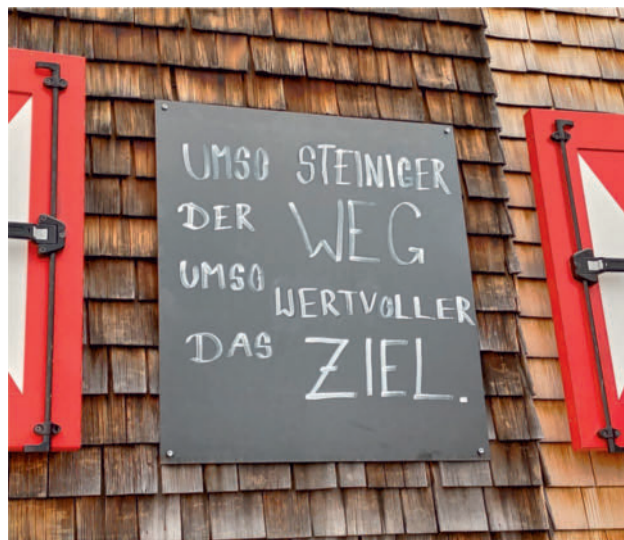 UMSO STEINIGER
DER WEG
UMSO WERTVOLLER
DAS ZIEL.